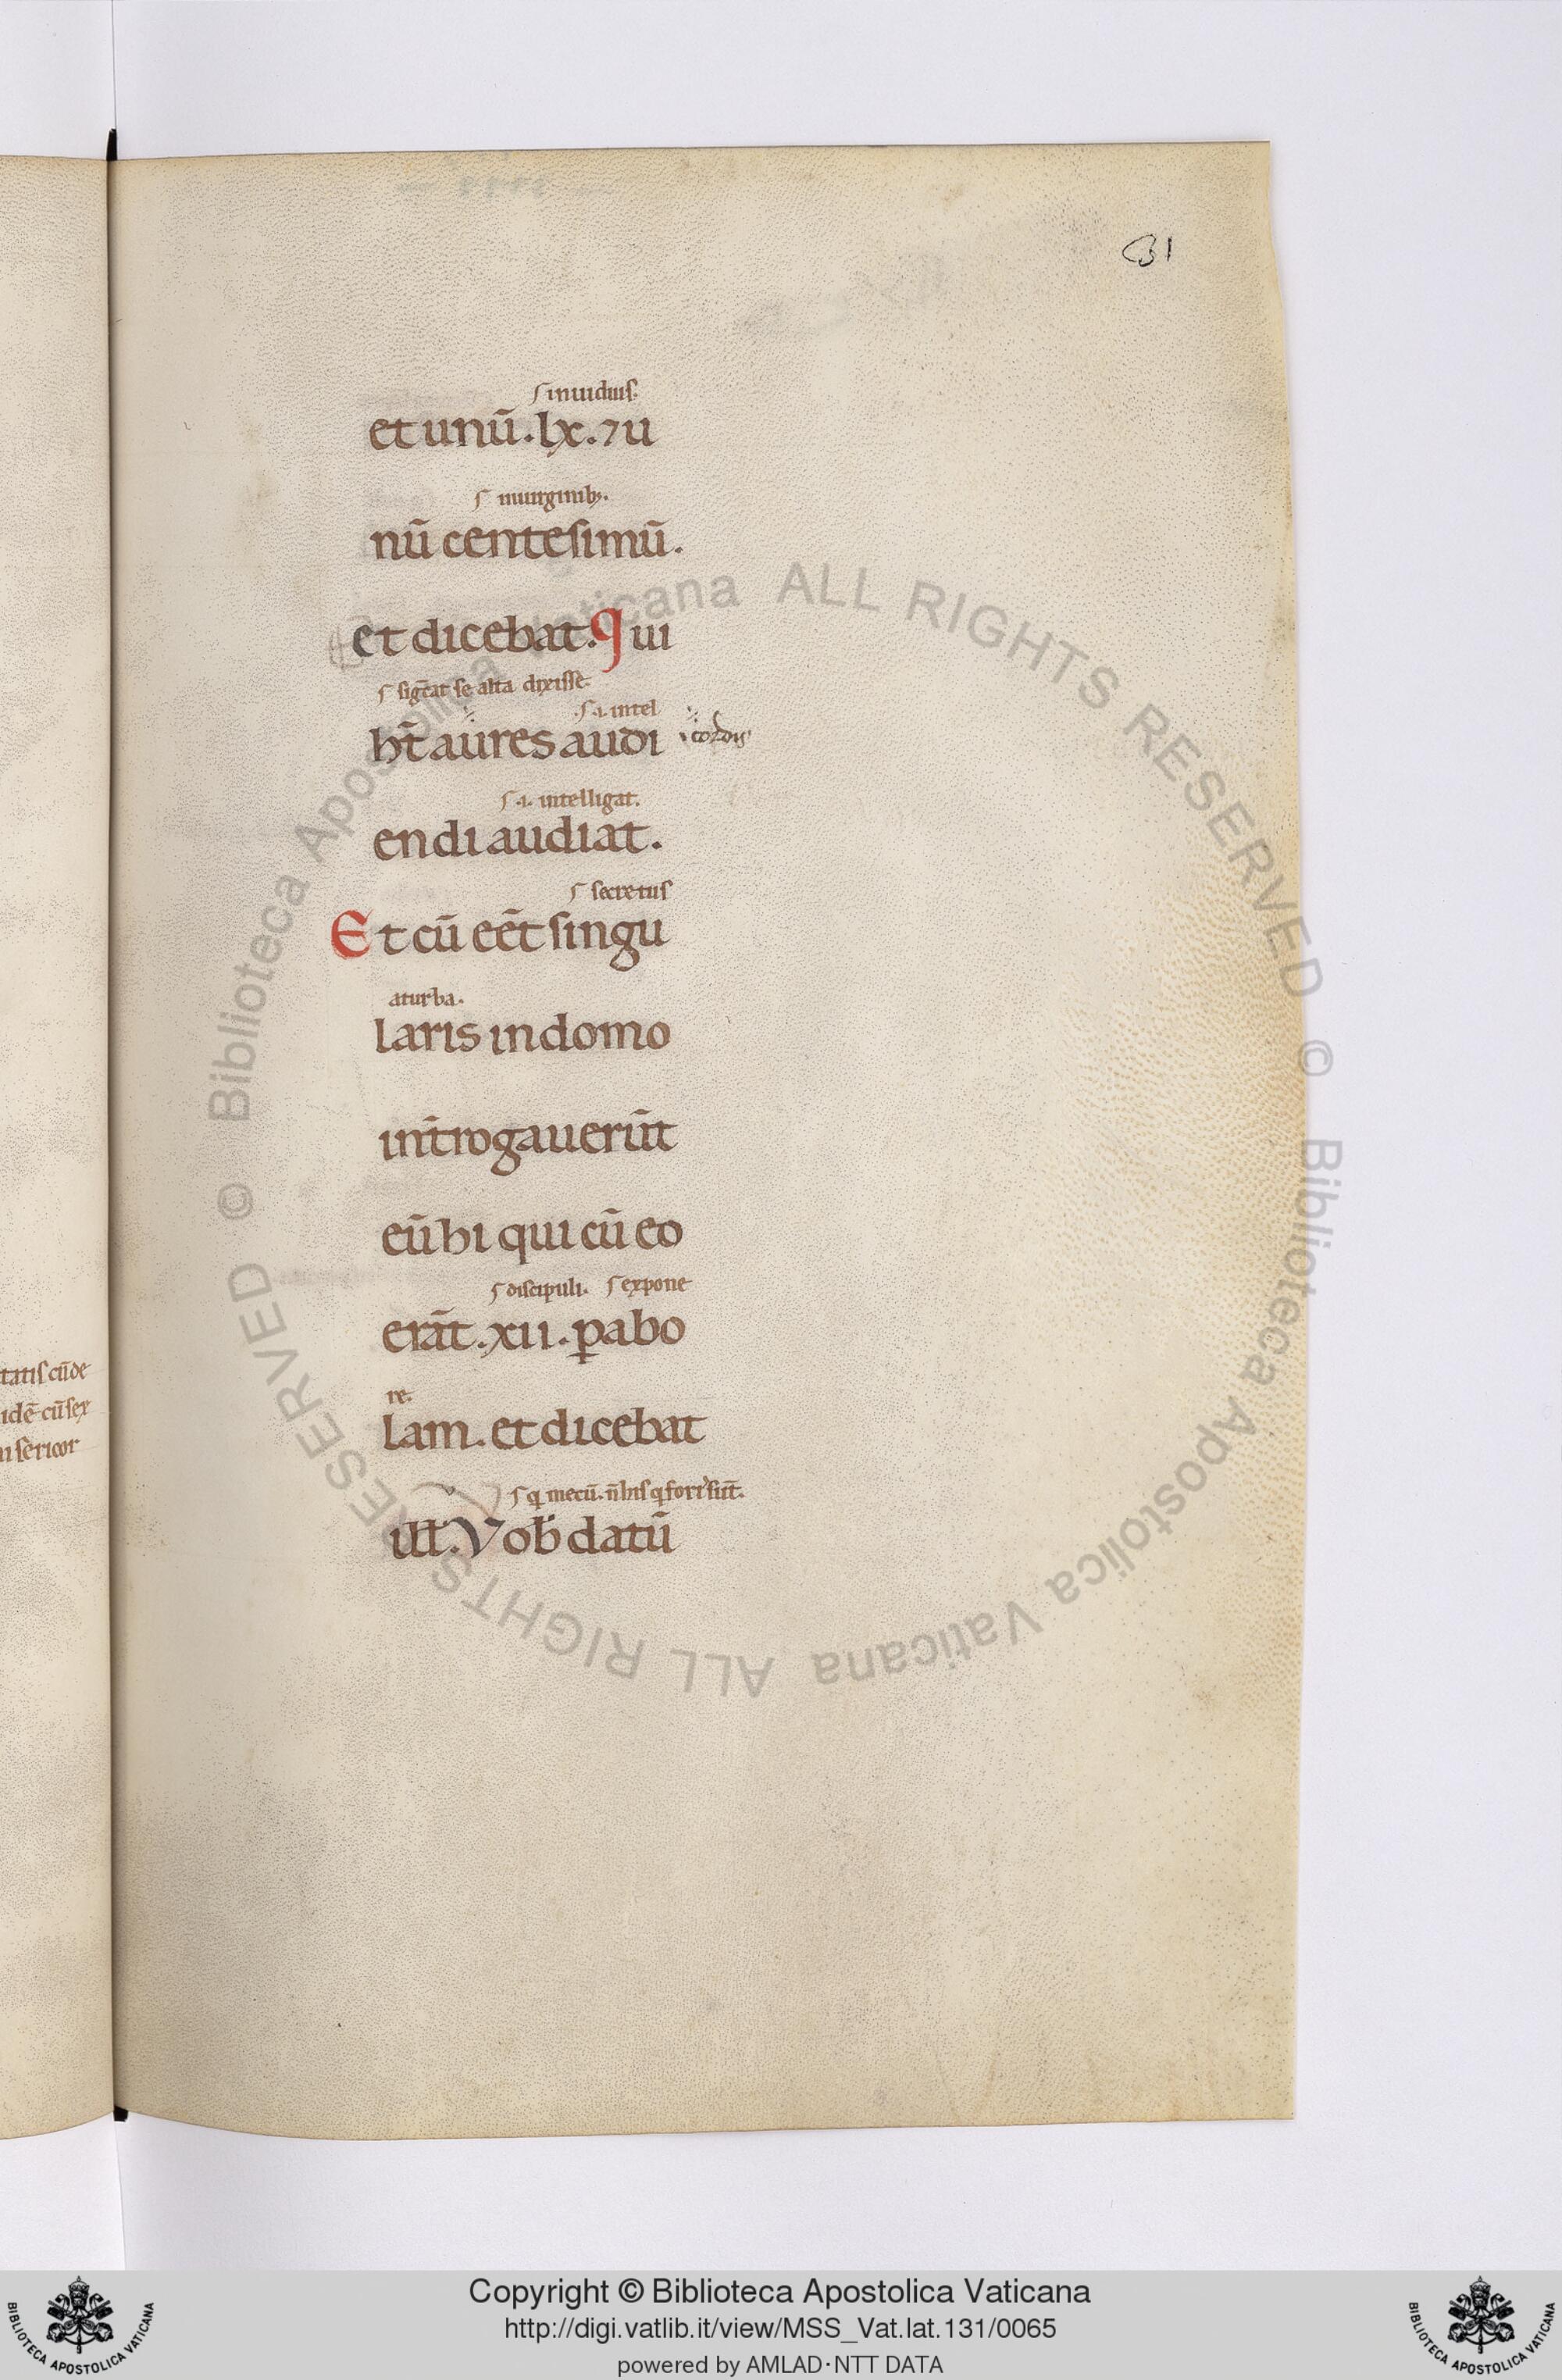 31
ſ inuidiuiſ.
et unū . lx . ⁊ u
ſ inuirginib;.
nū centeſimū .
et dicebat . Qui
ſ ſigc̄at ſe alta dixiſſe.
ſ .i. intel
hn̄t aures audi
i cordis
ſ .i. intelligat.
endi audiat .
ſ ſecretuſ
Et cū eēt ſingu
aturba.
laris indomo
int̄rogauerūt
eū hi qui cū eo
ſ diſcipuli. ſ expone
erāt . xii . ꝑabo
re.
lam . et dicebat
ſ q mecū. n̄ hiſ q foriſ ſūt.
ill̄ . Vob̄ datū
tatiſ cū de
idē cū ſex
Biblioteca Apostolica Vaticana ALL RIGHTS RESERVED © Biblioteca Apostolica Vaticana ALL RIGHTS RESERVED ©
Copyright © Biblioteca Apostolica Vaticana
http://digi.vatlib.it/view/MSS_Vat.lat.131/0065
powered by AMLAD·NTT DATA
BIBLIOTECA APOSTOLICA VATICANA
BIBLIOTECA APOSTOLICA VATICANA